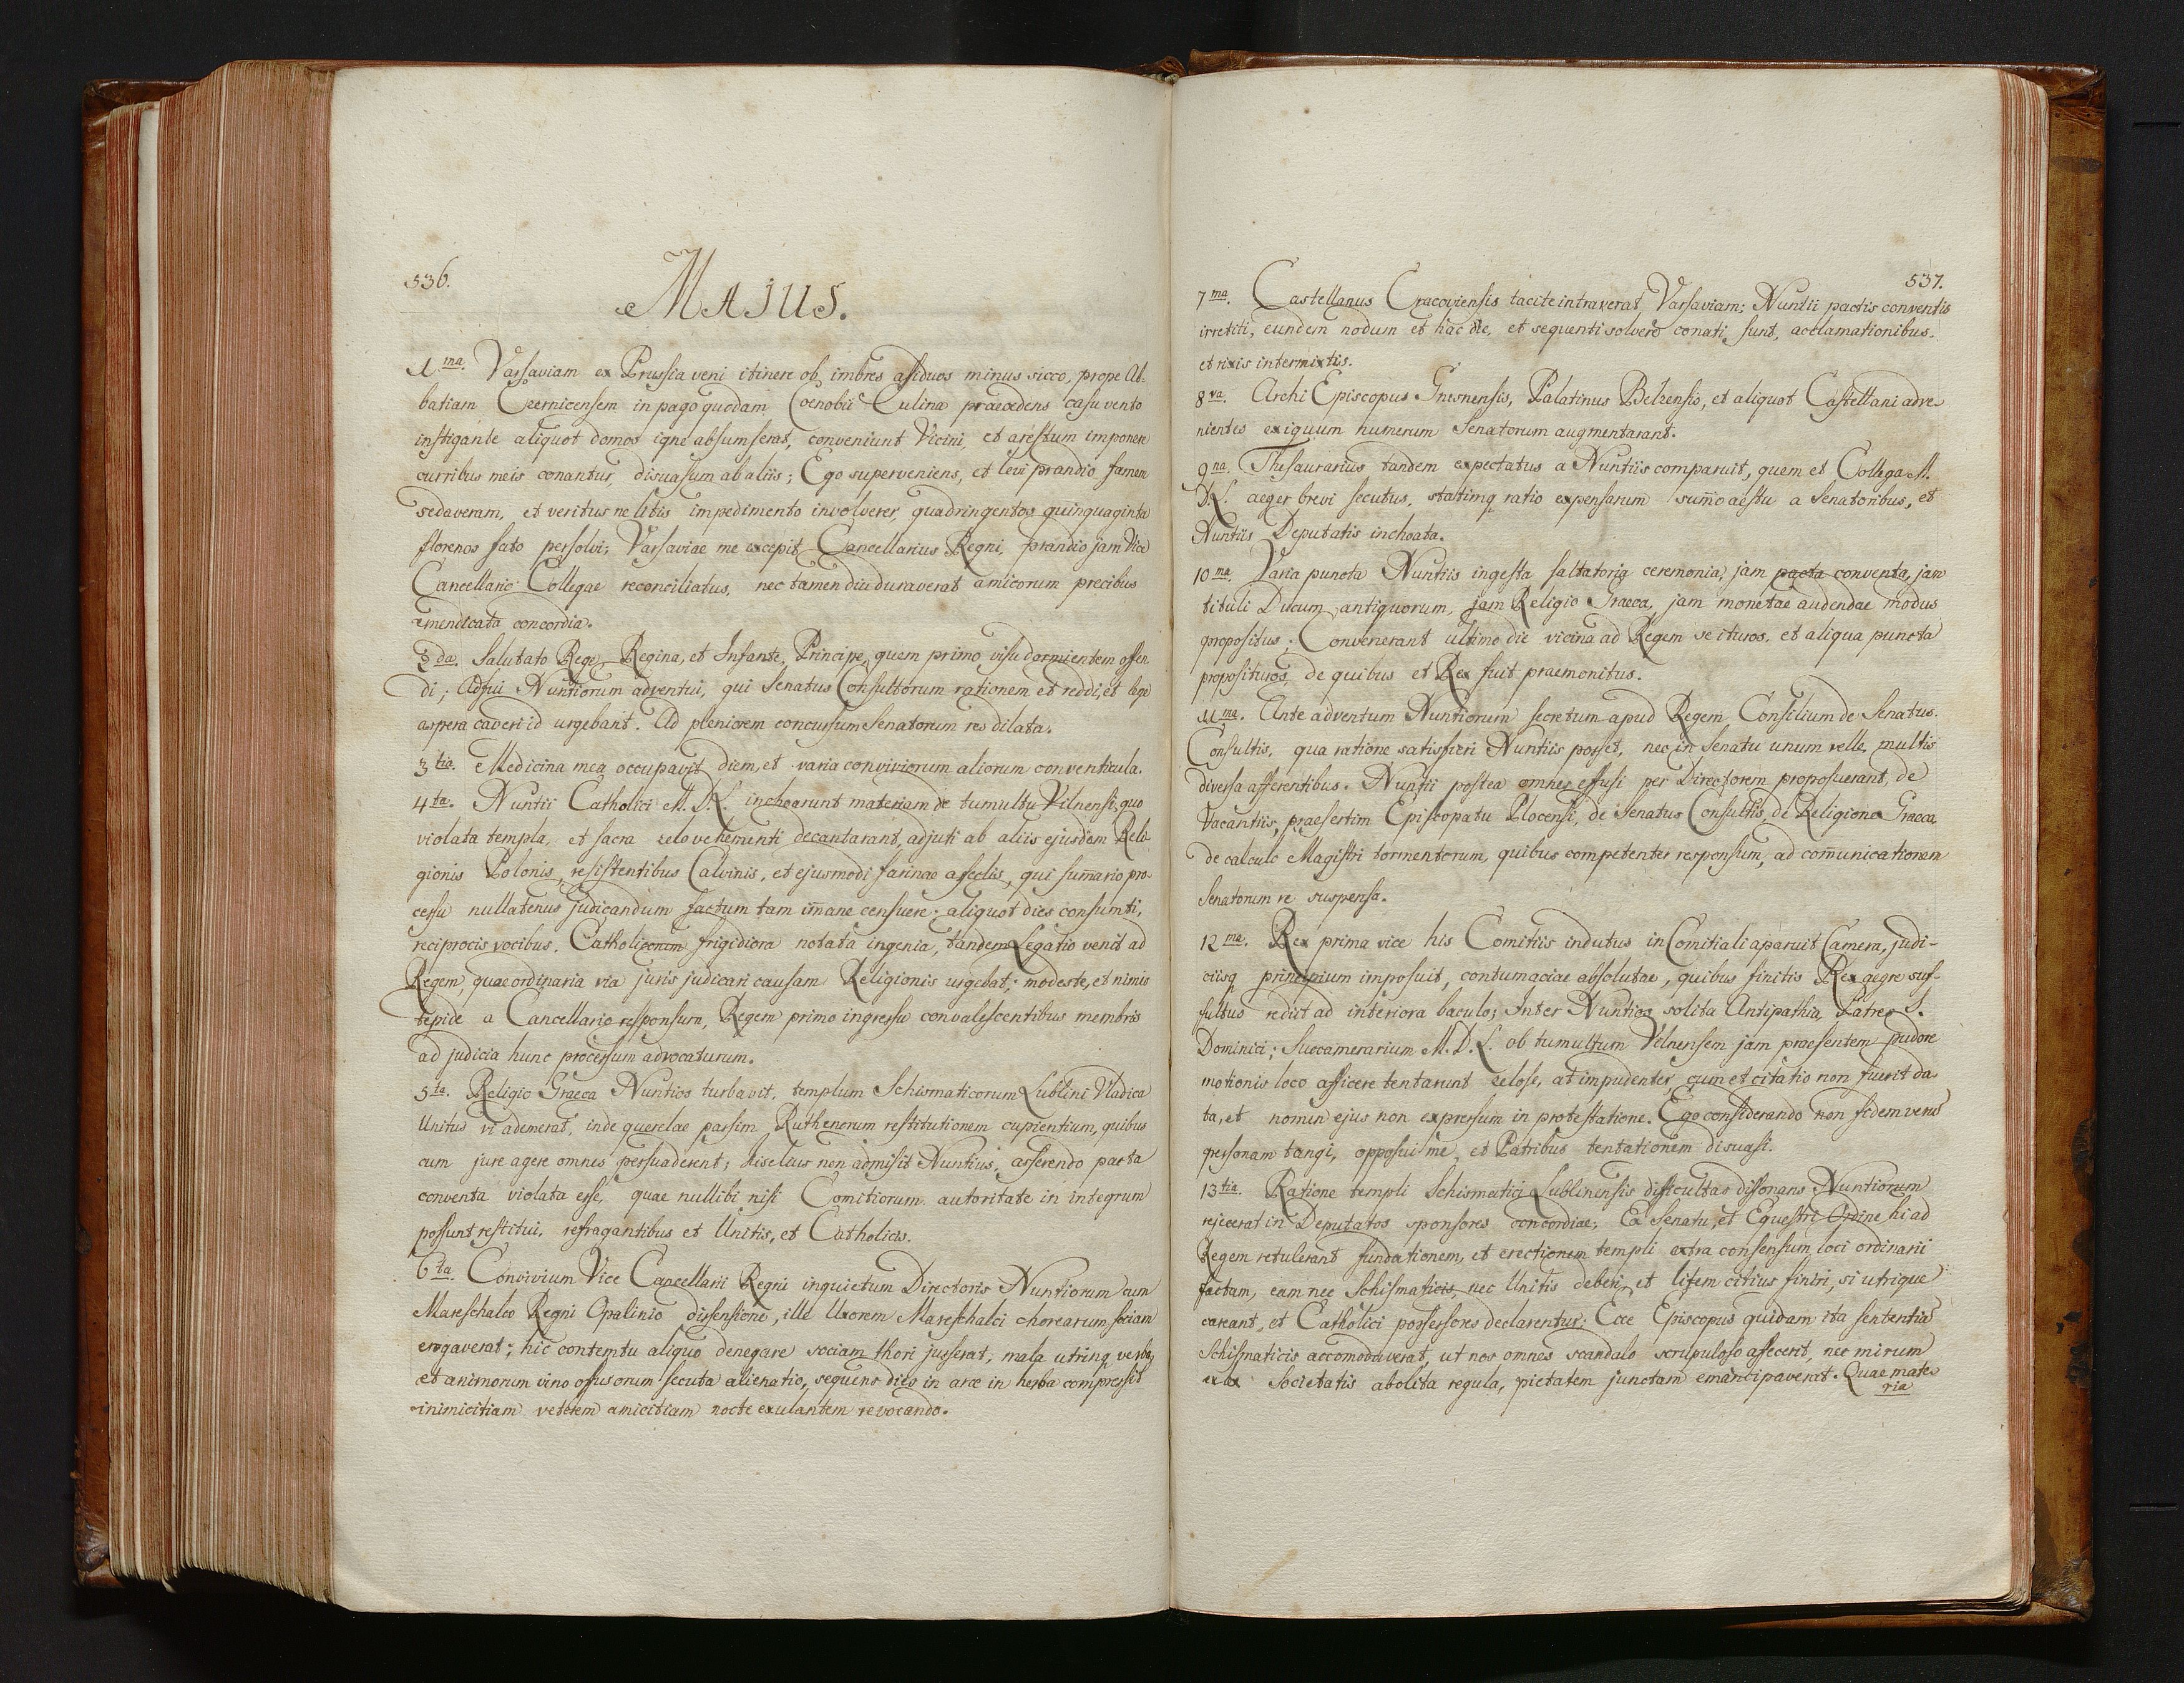 536.
MAJUS.
1ma. Varsaviam ex Prussia veni itinere ob imbres assiduos minus sicco, prope Ab-
batiam Czernicensem in pago quodam Coenobii Culina praecedens casu vento
instigante aliquot domos igne absumserat, conveniunt Vicini, et arestum imponere
curribus meis conantur, disuasum ab aliis; Ego superveniens, et levi prandio famem
sedaveram, et veritus ne litis impedimento involverer, quadringentos quinquaginta
florenos fato persolvi; Varsaviae me excepit Cancellarius Regni, prandio jam Vice
Cancellario Collegae reconciliatus, nec tamen diu duraverat amicorum precibus
emendicata concordia.
2da. Salutato Rege, Regina, et Infante, Principe, quem primo visu dormientem offen
di; Adfui Nuntiorum adventui, qui Senatus Consultorum rationem et reddi, et lege
aspera caveri id urgebant. Ad pleniorem concursum Senatorum res dilata.
3tia. Medicina mea occupavit diem, et varia conviviorum aliorum conventicula.
4ta. Nuntii Catholici M. D. L. inchoarunt materiam de tumultu Vilnensi, quo
violata templa, et sacra zelo vehementi decantarant, adjuti ab aliis ejusdem Reli-
gionis Polonis, resistentibus Calvinis, et ejusmodi farinae asseclis, qui sum̄ario pro-
cessu nullatenus judicandum factum tam im̄ane censuere; aliquot dies consumti,
reciprocis vocibus, Catholicorum frigidiora notata ingenia, tandem Legatio venit ad
Regem, quae ordinaria via juris judicari causam Religionis urgebat; modeste, et nimis
tepide a Cancellario responsum, Regem primo ingressu convalescentibus membris
ad judicia hunc processum advocaturum.
5ta. Religio Graeca Nuntios turbavit, templum Schismaticorum Lublini Vladica
Unitus vi ademerat, inde querelae passim Ruthenorum restitutionem cupientium, quibus
cum jure agere omnes persuaderent; Kiselius non admisit Nuntius, asserendo pacta
conventa violata esse, quae nullibi nisi Comitiorum autoritate in integrum
possunt restitui, refragantibus et Unitis, et Catholicis.
6ta. Convivium Vice Cancellarii Regni inquietum Directoris Nuntiorum cum
Mareschalco Regni Opalinio dissensione, ille Uxorem Mareschalci chorearum sociam
erogaverat; hic contemtu aliquo denegare sociam thori jusserat, mala utrinq verba,
et animorum vino offusorum secuta alienatio, sequens dies in arce in herba compressit
inimicitiam veterem amicitiam nocte exulantem revocando.
537.
7ma. Castellanus Cracoviensis tacite intraverat Varsaviam; Nuntii pactis conventis
irretiti, eundem nodum et hac die, et sequenti solvere conati sunt, acclamationibus.
et rixis intermixtis.
8va. Archi Episcopus Gnesnensis, Palatinus Belzensis, et aliquot Castellani adve-
nientes exiguum numerum Senatorum augmentarant.
9na. Thesaurarius tandem expectatus a Nuntiis comparuit, quem et Collega M.
D. L. aeger brevi secutus, statimq ratio expensarum sum̄o aestu a Senatoribus, et
Nuntiis Deputatis inchoata.
10ma. Varia puncta Nuntiis ingesta saltatoria ceremonia, jam pacta conventa, jam
tituli Ducum antiquorum, jam Religio Graeca, jam monetae audendae modus
propositus; Convenerant ultimo die vicina ad Regem se ituros, et aliqua puncta
proposituros, de quibus et Rex fuit praemonitus.
11ma. Ante adventum Nuntiorum secretum apud Regem Consilium de Senatus.
Consultis, qua ratione satisfieri Nuntiis posset, nec in Senatu unum velle, multis
diversa afferentibus. Nuntii postea omnes effusi per Directorem proposuerant, de
Vacantiis, praesertim Episcopatu Plocensi, de Senatus Consultis, de Religione Graeca
de calculo Magistri tormentorum, quibus competenter responsum, ad com̄unicationem
Senatorum re suspensa.
12ma. Rex prima vice his Comitiis indutus in Comitiali aparuit Camera, judi-
ciisq principium imposuit, contumaciae absolutae, quibus finitis Rex aegre suf-
fultus rediit ad interiora baculo; Inter Nuntios solita Antipathia, Patres S.
Dominici; Succamerarium M. D. L. ob tumultum Vilnensem jam praesentem pudore
motionis loco afficere tentarunt zelose, at impudenter, cum et citatio non fuerit da
ta, et nomen ejus non expressum in protestatione. Ego considerando non fidem verus
personam tangi, opposui me, et Patribus tentationem disuasi.
13tia. Ratione templi Schismatici Lublinensis difficultas dissonans Nuntiorum
rejecerat in Deputatos sponsores concordiae; Ex Senatu, et Equestri Ordine hi ad
Regem retulerant fundationem, et erectionem templi extra consensum loci ordinarii
factam, eam nec Schismaticis, nec Unitis deberi, et litem citius finiri, si utrique
careant, et Catholici possessores declarentur; Ecce Episcopus quidam ita sententia
Schismaticis accomodaverat, ut nos omnes scandalo scrupuloso affecerit, nec mirum
ex Societatis abolita regula, pietatem junctam emancipaverat. Quae mate-
ria